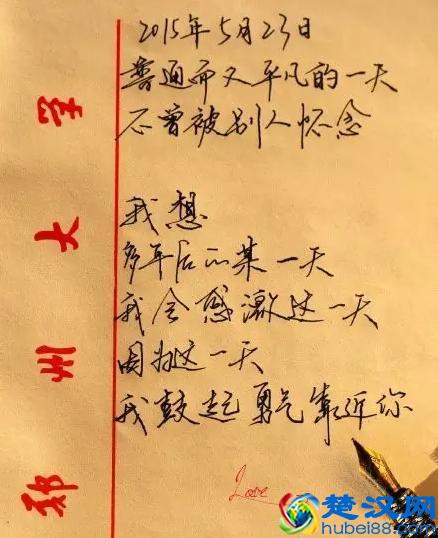 2015年5月23日
普通而又平凡的一天
不曾被别人怀念
我想
多年后的某一天
我会感激这一天
因为这一天
我鼓起勇气靠近你
郑州大学
Love
楚汉网
hubei88.com